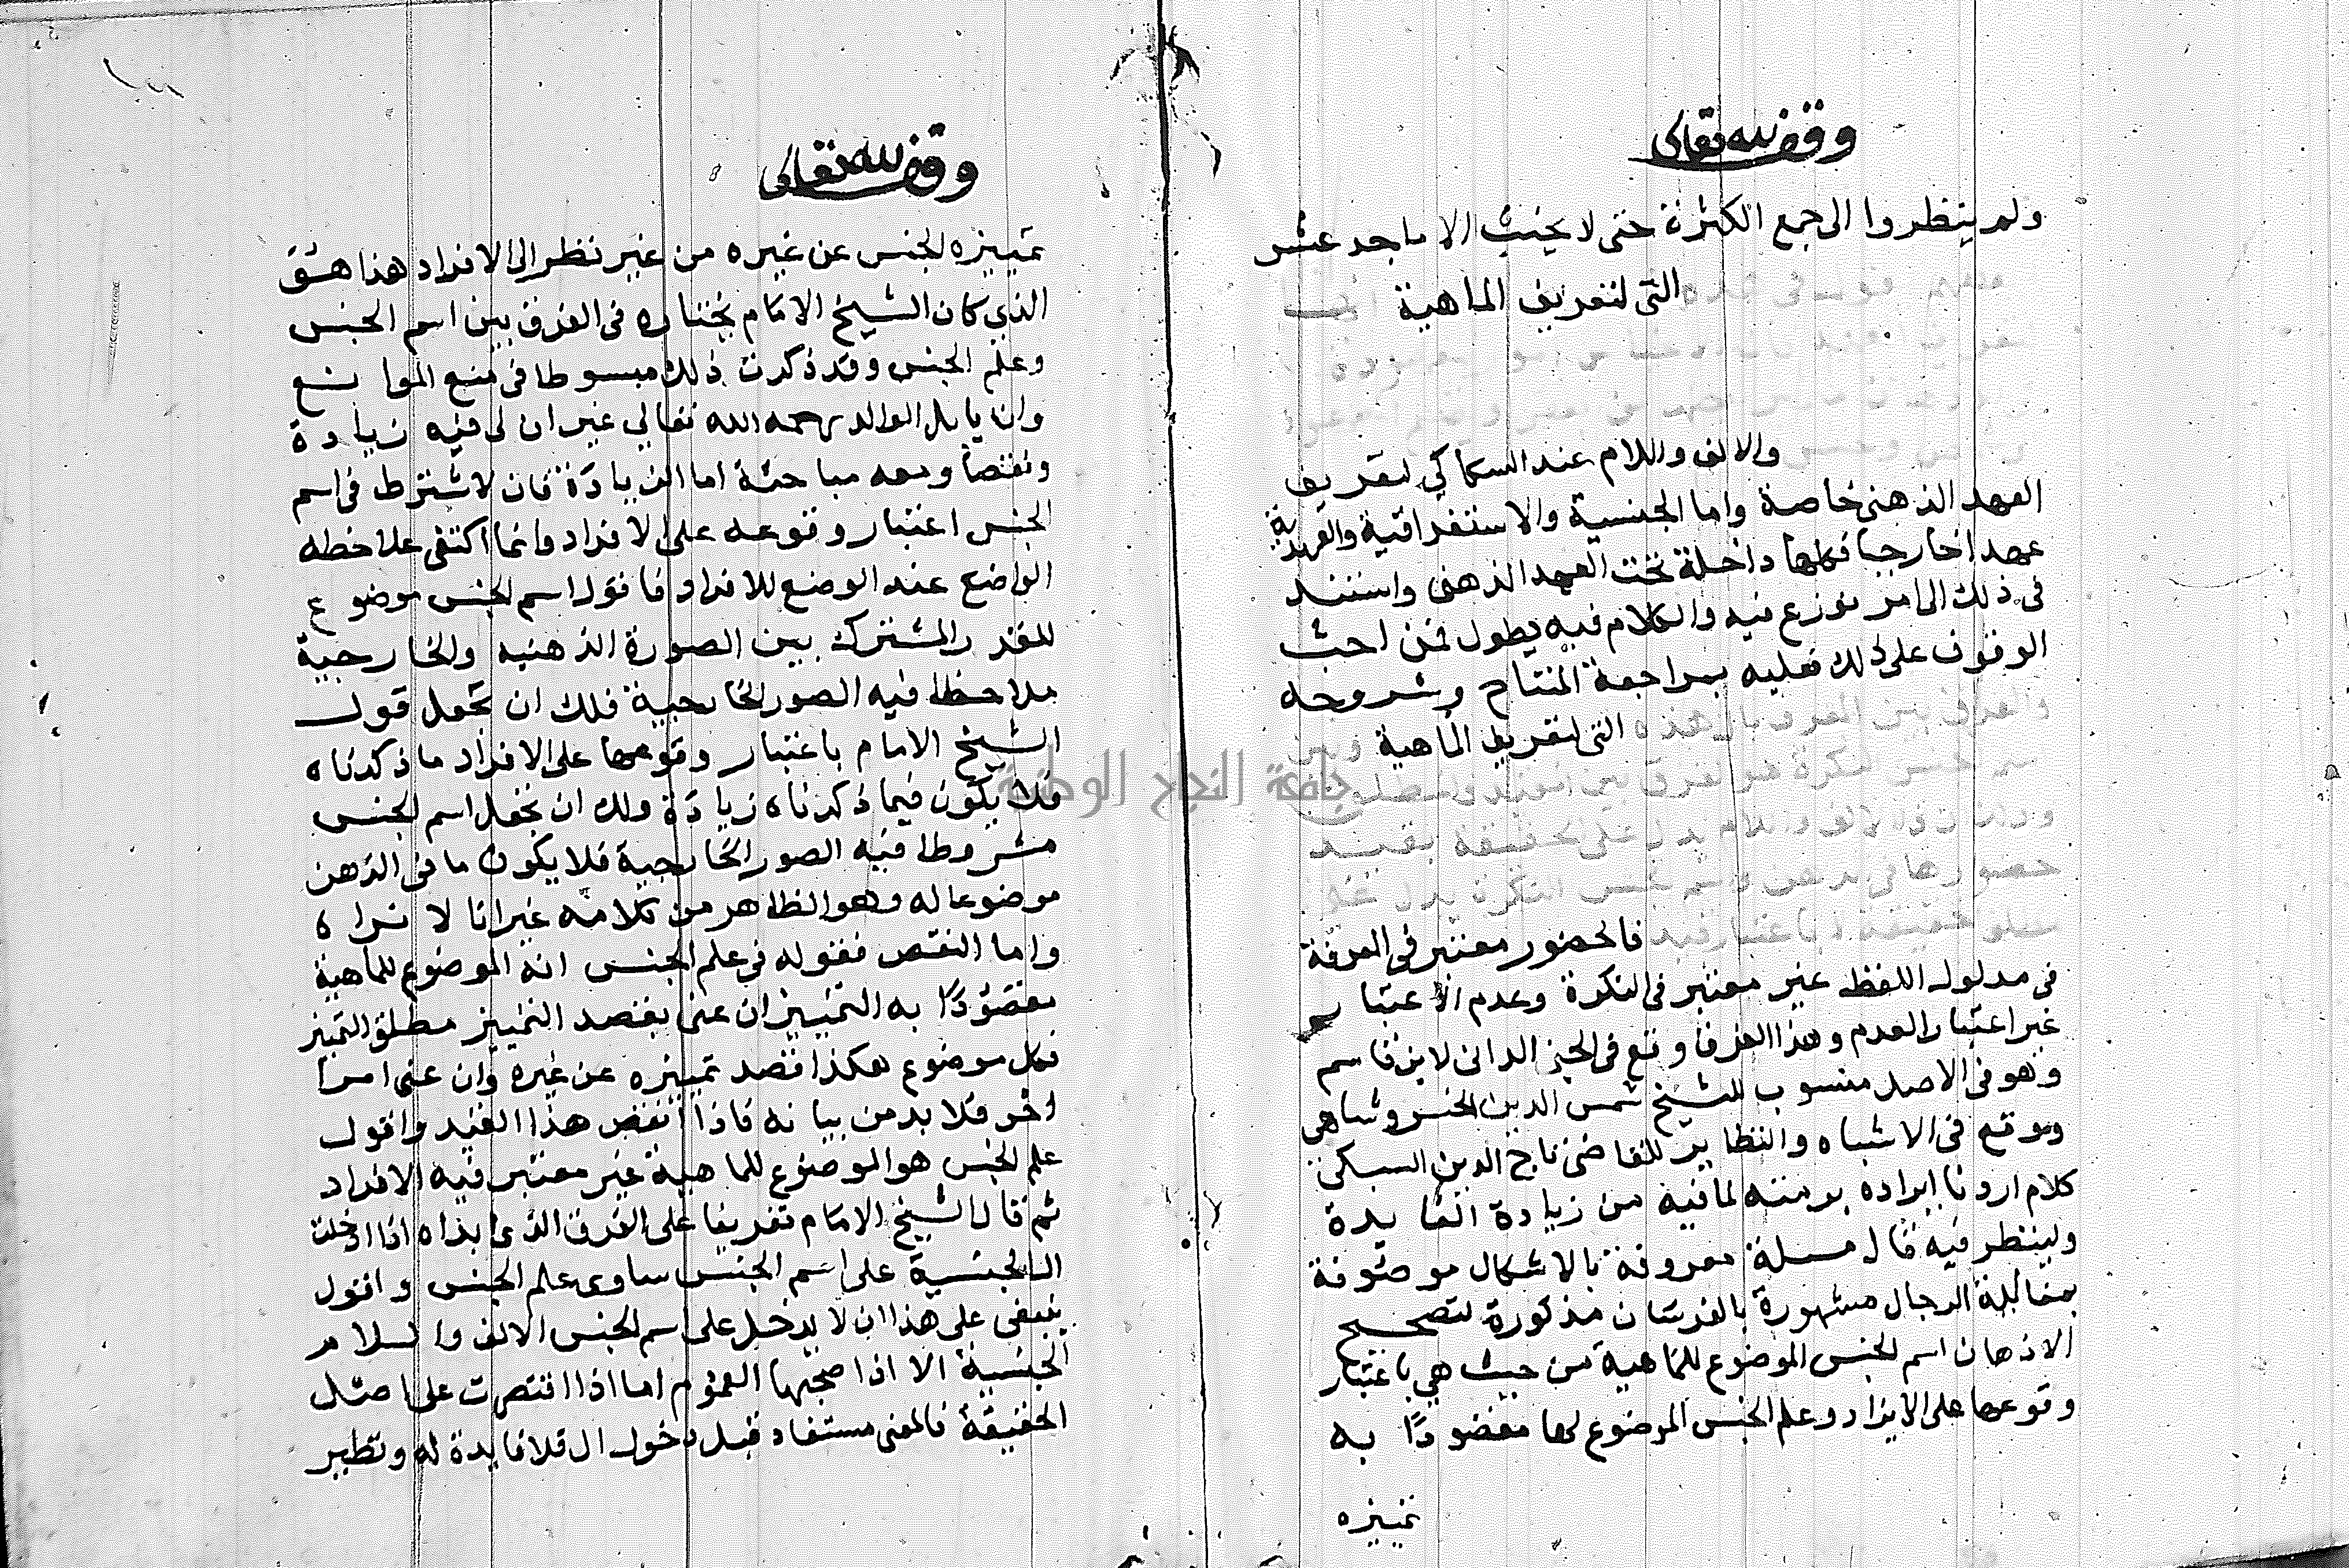 وقف لله تعالى
ولم ينظروا الى جمع الكثرة حتى لا يحنث الا باحد عشر
التى لتعريف الماهية
والالف واللام عند السكاكي لتعريف
العهد الذهنى خاصة واما الجنسية والاستغراقية والعهدية
عهدا خارجيا فكلها داخلة تحت العهد الذهنى واستند
فى ذلك الى امر نوزع فيه والكلام فيه يطول فمن احب
الوقوف على ذلك فعليه بمراجعة المفتاح وشروحه
والفرق بين المعرف بال هذه التى لتعريف الماهية وبين
اسم جنس النكرة هو الفرق بين المقيد والمطلق
وذلك ان ذا الالف واللام يدل على الحقيقة بقيد
حضورها فى الذهن واسم الجنس النكرة يدل على
مطلق الحقيقة لا باعتبار قيد فالحضور معتبر فى المعرفة
فى مدلول اللفظ غير معتبر فى النكرة وعدم الاعتبار
غير اعتبار العدم وهذا الفرق وقع فى الجنى الدانى لابن قاسم
وهو فى الاصل منسوب للشيخ شمس الدين الخسروشاهى
ووقع فى الاشباه والنظاير للقاضى تاج الدين السبكى
كلام اردنا ايراده برمته لما فيه من زيادة الفايدة
ولينظر فيه قال مسلة معروفة بالاشكال موصوفة
بمغالبة الرجال مشهورة بالفرسان مذكورة لتصحيح
الاذهان اسم الجنس الموضوع للماهية من حيث هي باعتبار
وقوعها على الافراد وعلم الجنس الموضوع لها مقصودًا به
تمييزه
وقف لله تعالى
تمييزه الجنس عن غيره من غير نظر الى الافراد هذا هو
الذي كان الشيخ الامام يختاره فى الفرق بين اسم الجنس
وعلم الجنس وقد ذكرت ذلك مبسوطا فى منع الموانع
وان يابل الوالد رحمه الله تعالي غير ان لى فيه زيادة
ونقصا ومعه مباحثة اما الزيادة فان لا نشترط فى اسم
الجنس اعتبار وقوعه على الافراد وانما اكتفى بملاحظة
الواضع عند الوضع للافراد فاقول اسم الجنس موضوع
للقدر المشترك بين الصورة الذهنيه والخارجية
ملاحظا فيه الصور الخارجية فلك ان تجعل قول
الشيخ الامام باعتبار وقوعها على الافراد ما ذكرناه
فلا يكون فيما ذكرناه زيادة ولك ان تجعل اسم الجنس
مشروطا فيه الصور الخارجية فلا يكون ما فى الذهن
موضوعا له وهو الظاهر من كلامه غير انا لا نراه
واما النقص فقوله فى علم الجنس انه الموضوع للماهية
مقصودًا به التمييز ان عنى بقصد التمييز مطلق التميز
فكل موضوع هكذا قصد تمييزه عن غيره وان عنى امرا
اخر فلا بد من بيانه فاذا انقض هذا القيد واقول
علم الجنس هو الموضوع للماهية غير معتبر فيه الافراد
ثم قال الشيخ الامام تفريعا على الفرق الذى ابداه اذا ادخلت
ال الجنسية على اسم الجنس ساوى علم الجنس واقول
ينبغى على هذا ان لا يدخل على اسم الجنس الالف واللام
الجنسية الا اذا صحبها العموم اما اذا اقتصرت على اصل
الحقيقة فالمعنى مستفاد قبل دخول ال فلا فايدة له ونظير
جامعة النجاح الوطنية